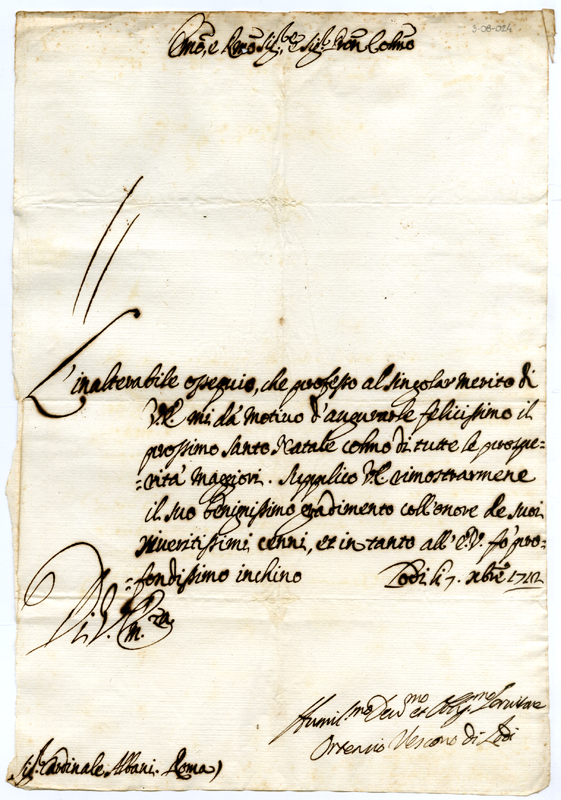 S-08-024
Emo, e Rmo Sigre, Sigr Pron Colmo
L'inalterabile ossequio, che professo al singolar merito di
V.E. mi dà motivo d'augurarle felicissimo il
prossimo Santo Natale colmo di tutte le prospe=
=rità maggiori. Supplico V.E. rimostrarmene
il suo benignissimo gradimento coll'onore de suoi
riveritissimi cenni, et in tanto all'E.V. fò pro=
=fondissimo inchino Lodi li 7. Xbre
Di V. Em.za
Humilmo Devmo et Obligmo Servitore
Ortensio Vescovo di Lodi
Sigr Cardinale Albani. Roma)